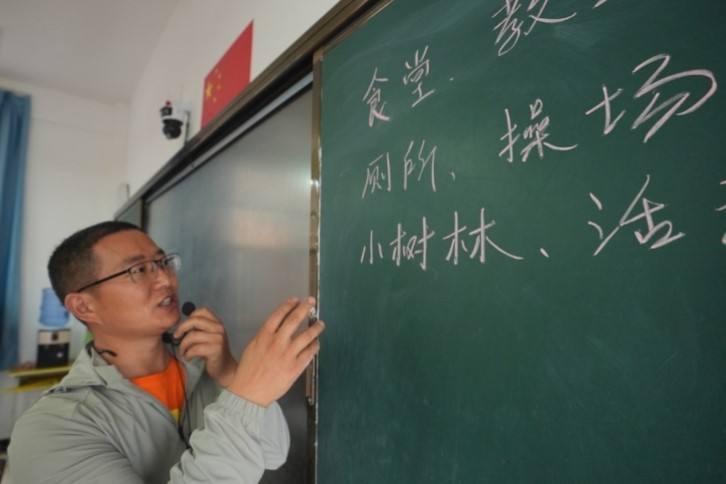 食堂、教
厕所、操场
小树林、活